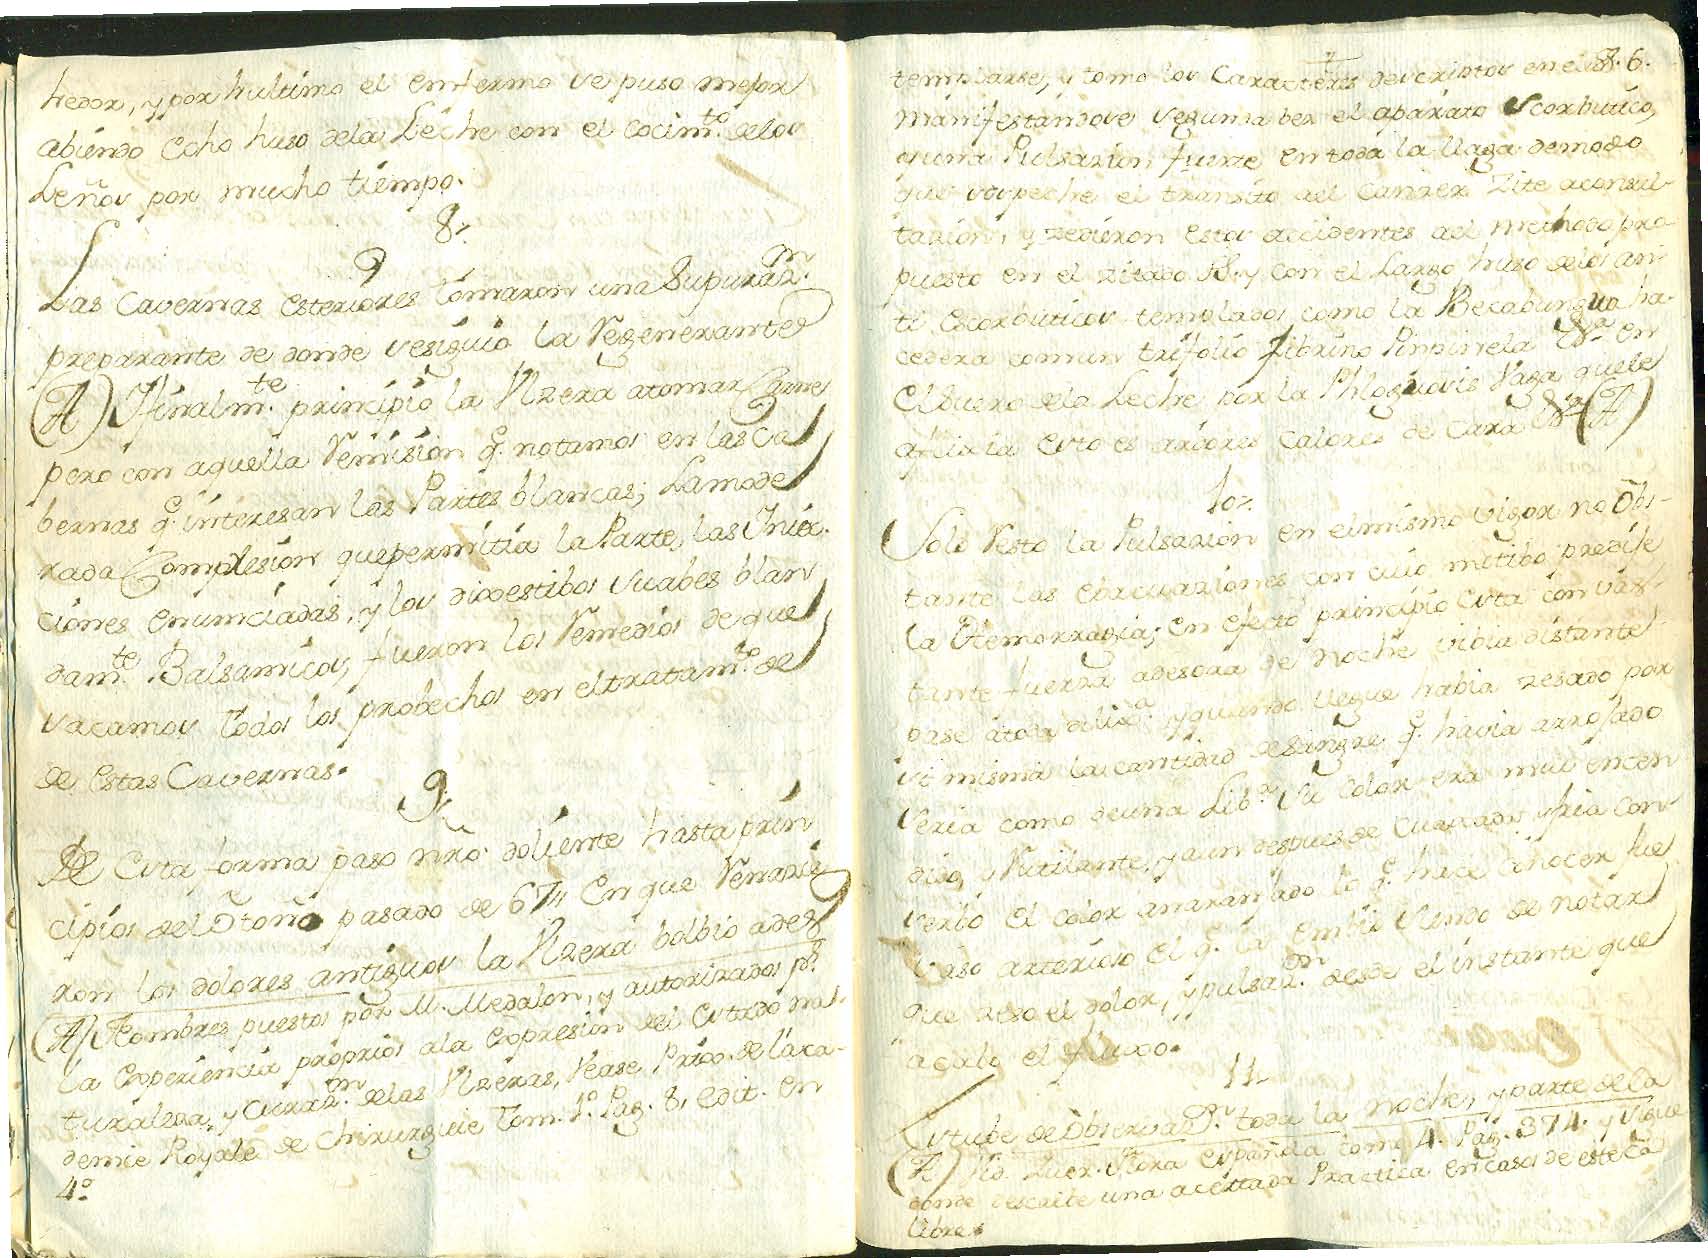 hedor, y por hultimo el enfermo se puso mejor
abiendo echo huso dela Leche con el cocimto. delos
Leños por mucho tiempo.
8,,
Las Cavernas esteriores tomaron una Supurazn.
preparante de donde sesiguio la Regenerante
(A) Y finalmte. principio la Ulzera atomar Carne
pero con aquella Remision q. notamos en las Ca
bernas q. interesan las Partes blancas; La mode
rada Complesion que permitia la Parte, las Iniec
ciones enunciadas, y los dixestibos suabes blan
damte. Balsamicos, fueron los Remedios de que
sacamos todos los probechos en el tratamto. de
de estas Cavernas.
9,,
De esta forma paso nro. doliente hasta prin
cipios del Otoño pasado de 67,, en que Renazie
ron los dolores antiguos la Ulzera bolbio a des
(A) Nombres puestos por M. Medalon, y autorizados pr.
la experiencia proprios a la expresion del estado na
turaleza, y Curazn. delas Ulzeras, Vease Prix. de l'aca-
demie Royale de Chirurgie Tom. 1o. Pag. 8, edit. en
4o.
6.
templarse, y tomo los Caracteres descriptos en el §. 6.
manifestandose segunda bez el aparato scorbutico,
y una Pulsazion fuerte en toda la llaga demodo
que sospeche el transito al Canzer. Zite aconsul-
tazion, y zedieron estos accidentes al methodo pro
puesto en el zitado §. y con el Largo huso delos an
ti escorbuticos templados como la Becabunga ha-
cedera comun trifolio fibrino Pinpinela &a. en
El Suero dela Leche por la Phlogosis Vaga que le
afligia esto es ardores calores de Cara &a. (A)
10,,
Solo Resto la Pulsazion en el mismo vigor no Obs-
tante las ebacuaziones con cuio motibo predije
la Hemorragia; en efecto principio esta con bas-
tante fuerza a desora de Noche vibia distante
pase a toda dilixa. y quando llegue habia zesado por
si misma la cantidad de Sangre q. havia arrojado
seria como de una Liba. su Color era mui encen
dido, Rutilante, y aun despues de Cuajada y fria con
serbo el Color anaranjado lo q. hace conocer fue
baso arterioso el q. la embio siendo de notar
que zeso el dolor, y pulsazn. desde el instante que
acabo el fluxo.
11
Estube de Obserbazn. toda la noche, y parte de la
(A) Vid. Quer. Flora Española tomo 4. Pag. 374. y sigue
donde descrive una acertada Practica en casos de este Ca
libre.